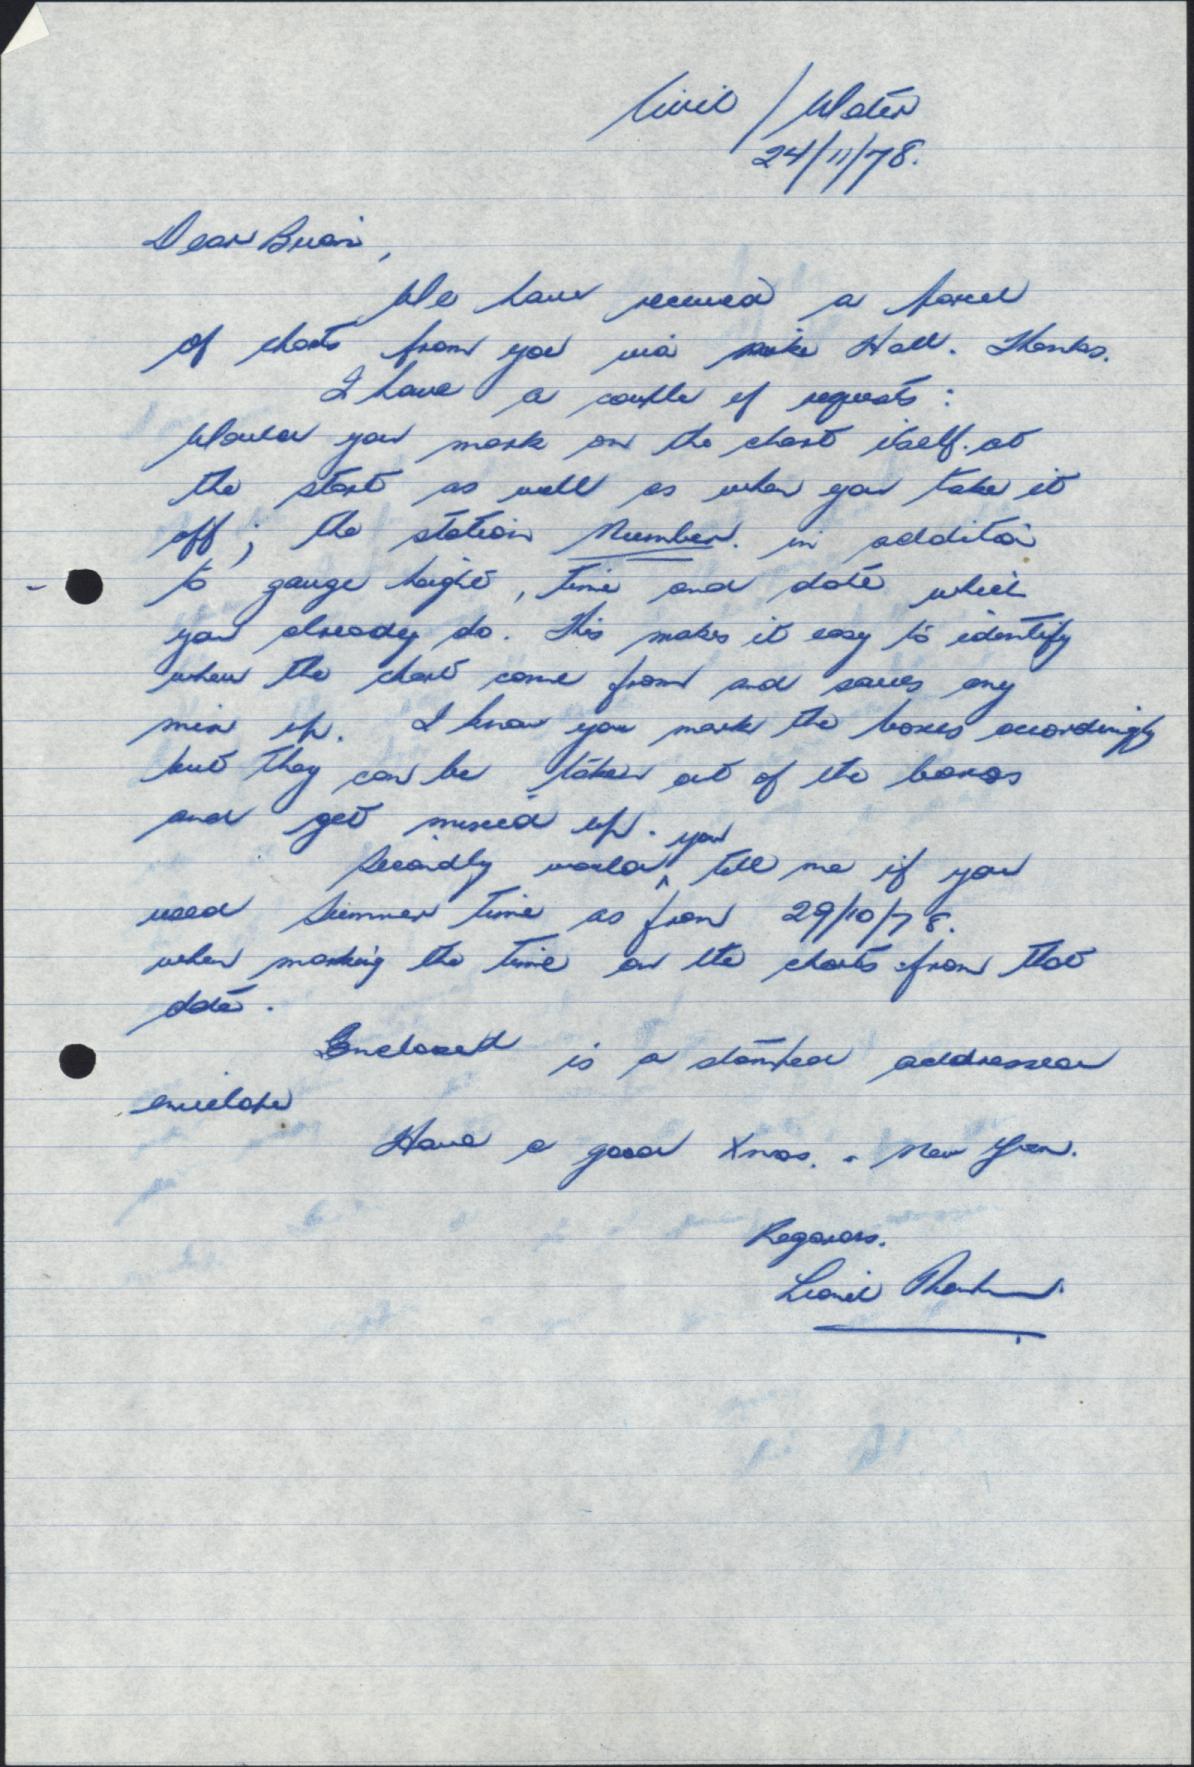 Civil / Water
24/11/78.
Dear Brian,
We have received a parcel
of charts from you via Mike Hall. Thanks.
I have a couple of requests :
Would you mark on the chart itself. at
the start as well as when you take it
off; the station Number. in addition
to gauge height, time and date which
you already do. This makes it easy to identify
where the chart came from and saves any
mix up. I know you mark the boxes accordingly
but they can be taken out of the boxes
and get mixed up.
Secondly would you tell me if you
used Summer time as from 29/10/78.
when marking the time on the charts from that
date.
Enclosed is a stamped addressed
envelope
Have a good Xmas. - New Year.
Regards.
Lionel